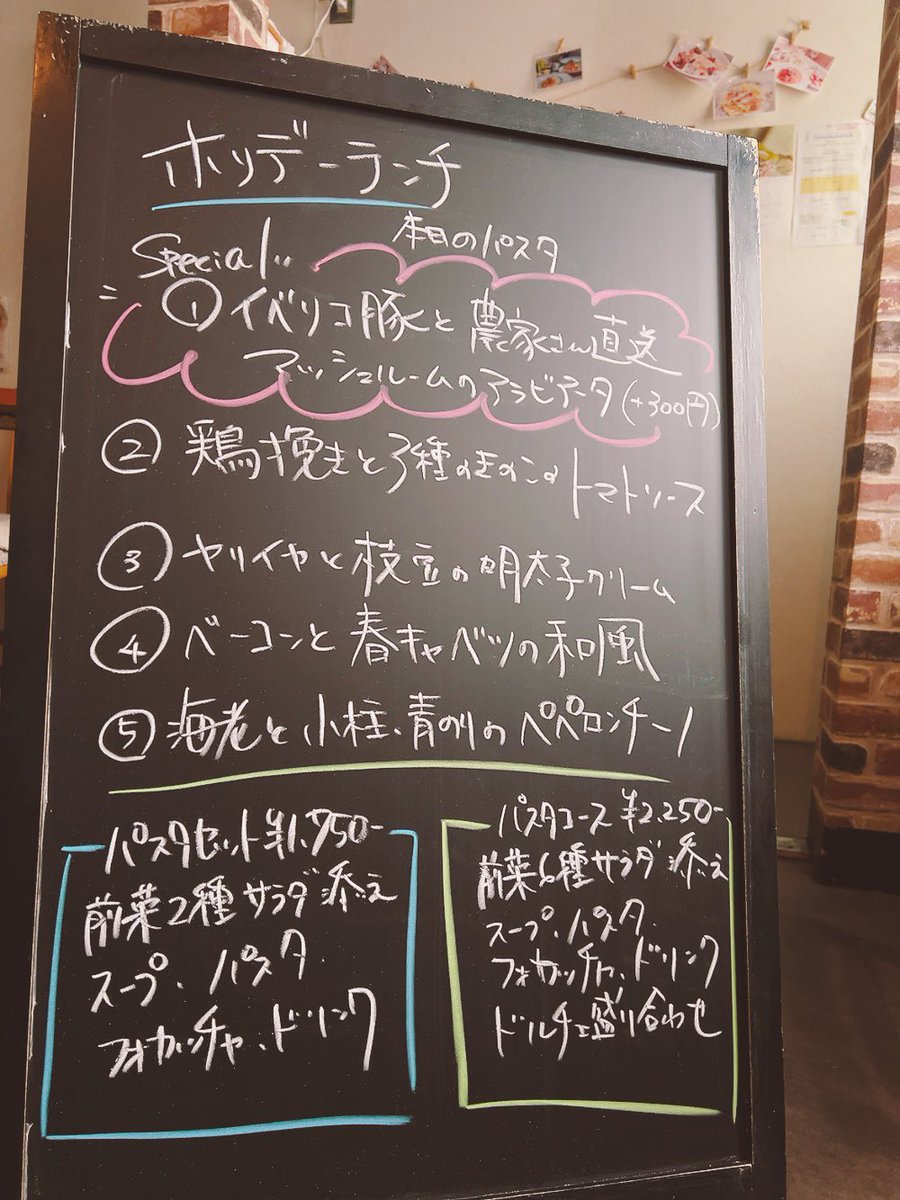 ホリデーランチ
本日のパスタ
Special!..
① イベリコ豚と農家さん直送
マッシュルームのアラビアータ(+300円)
② 鶏挽きと3種のきのこの トマトソース
③ ヤリイカと枝豆の明太子クリーム
④ ベーコンと春キャベツの和風
⑤ 海老と小柱、青のりのペペロンチーノ
パスタセット ¥1,750-
前菜2種サラダ添え
スープ、パスタ
フォカッチャ、ドリンク
パスタコース ¥2,250-
前菜6種サラダ添え
スープ、パスタ
フォカッチャ、ドリンク
ドルチェ盛り合わせ